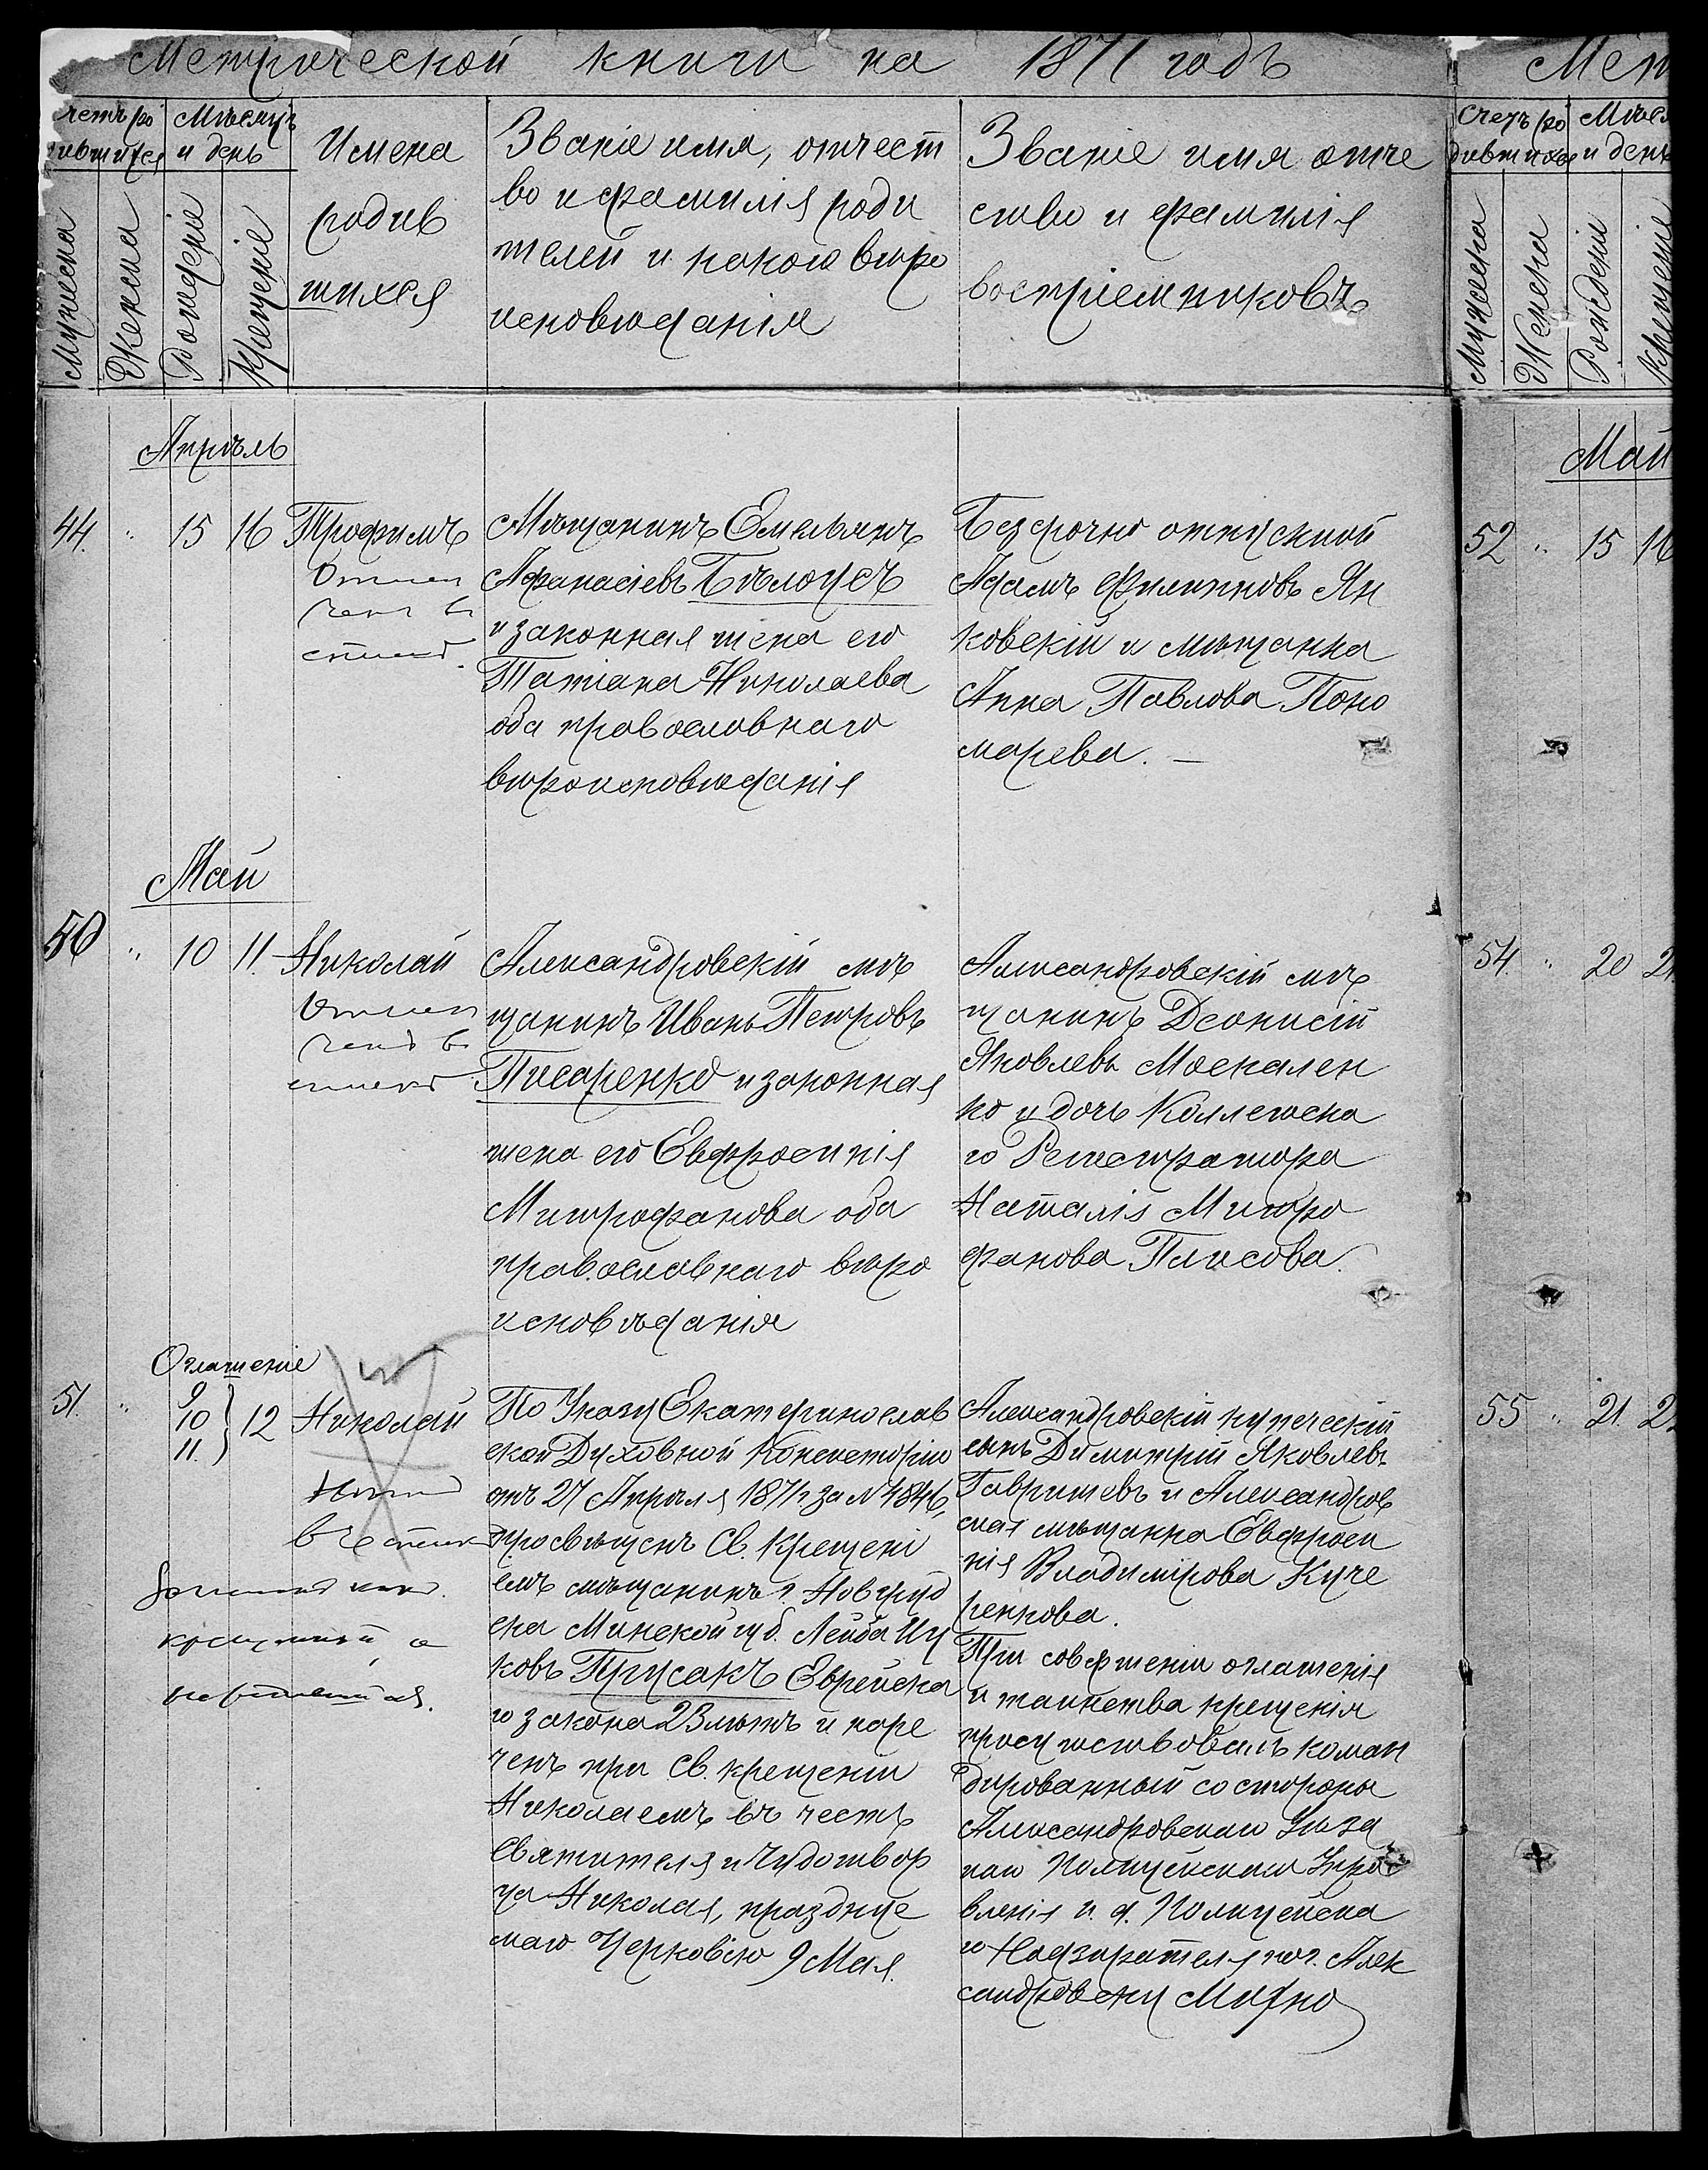 Метрической книги на 1871 годъ
Счетъ ро
дившихся
Мѣсяцъ
и день
Мужеска
Женска
Рожденіе
Крещеніе
Имена
родив
шихся
Званіе имя, отчест
во и фамилія роди
телей и какого вѣро
исповѣданія
Званіе имя отче
ство и фамилія
воспріемниковъ
Апрѣль
44. " 15 16 Трофимъ
Отмеч
ченъ въ
спискѣ.
Мѣщанинъ Емельянъ
Афанасіевъ Бѣлоусъ
и законная жена его
Татіана Николаева
оба православнаго
вѣроисповѣданія
Безсрочно отпускной
Адамъ Филипповъ Ян
ковскій и мѣщанка
Анна Павлова Поно
марева. —
Май
50 " 10 11. Николай
Отмеч
ченъ въ
спискѣ
Александровскій мѣ
щанинъ Иванъ Петровъ
Писаренко и законная
жена его Евфросинія
Митрофанова оба
православнаго вѣро
исповѣданія
Александровскій мѣ
щанинъ Деонисій
Яковлевъ Москален
ко и дочь Коллежска
го Регистратора
Наталія Митро
фанова Плисова.
Оглашеніе
51. " 9
10
11. } 12 Николай
въ спискѣ
крещеный, а
По Указу Екатеринослав
ской Духовной Консисторіи
отъ 27 Апрѣля 1871 г за № 4846,
просвѣщенъ Св. Крещені
емъ мѣщанинъ г. Новгруд
ска Минской губ. Лейба Иц
ковъ Прусакъ Еврейска
го закона 23 лѣтъ и наре
ченъ при Св. крещеніи
Николаемъ въ честь
Святителя и Чудотвор
ца Николая, праздвуе
маго Церковію 9 Мая.
Александровскій купеческій
сынъ Димитрій Яковлевъ
Гавришевъ и Александров
ская мѣщанка Евфроси
нія Владимірова Куче
ренкова.
При совершеніи оглашенія
и таинства крещенія
присутствовалъ коман
дированный со стороны
Александровскаго Уѣзд
наго Полицейскаго Упра
вленія и. д. Полицейска
го Надзирателя по г. Алек
сандровску Махно
Мет
Счетъ ро
дившихся
Мѣся
и день
Мужеска
Женска
Рожденіе
Крещеніе
Май
52 " 15 16
54. " 20 21
55 " 21. 2